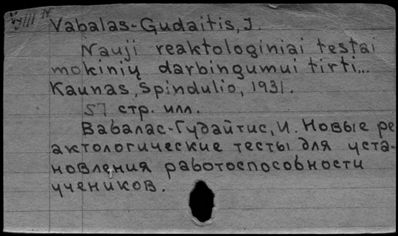 Vabalas-Gudaitis, J.
Nauji reaktologiniai testai
mokinių darbingumui tirti...
Kaunas, Spindulio, 1931.
57 стр. илл.
Вабалас-Гудайтис, И. Новые ре
актологические тесты для уста-
новления работоспособности
учеников.